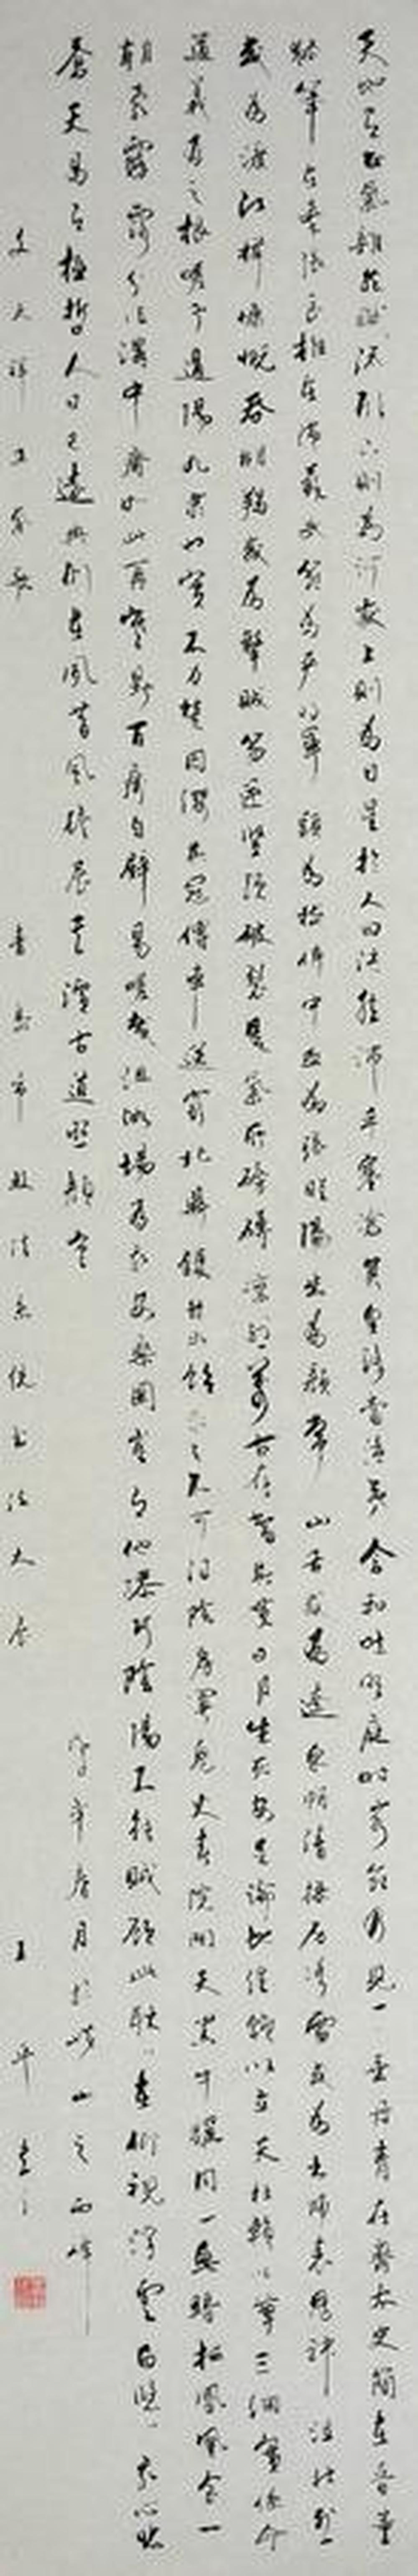 天地有正氣雜然賦流形下則為河嶽上則為日星於人曰浩然沛乎塞蒼冥皇路當清夷含和吐明庭時窮節乃見一一垂丹青在齊太史簡在晉董
狐筆在秦張良椎在漢蘇武節為嚴將軍頭為嵇侍中血為張睢陽齒為顏常山舌或為遼東帽清操厲冰雪或為出師表鬼神泣壯烈
或為渡江楫慷慨吞胡羯或為擊賊笏逆豎頭破裂是氣所磅礴凜烈萬古存當其貫日月生死安足論地維賴以立天柱賴以尊三綱實係命
道義為之根嗟予遘陽九隸也實不力楚囚纓其冠傳車送窮北鼎鑊甘如飴求之不可得陰房闃鬼火春院閟天黑牛驥同一皂雞栖鳳凰食一
朝蒙霧露分作溝中瘠如此再寒暑百癘自辟易嗟哉沮洳場為我安樂國豈有他繆巧陰陽不能賊顧此耿耿在仰視浮雲白悠悠我心悲
蒼天曷有極哲人日已遠典刑在夙昔風簷展書讀古道照顏色
月於山之西峰
文天祥正氣歌 青島市政法系統書法大展 王平書